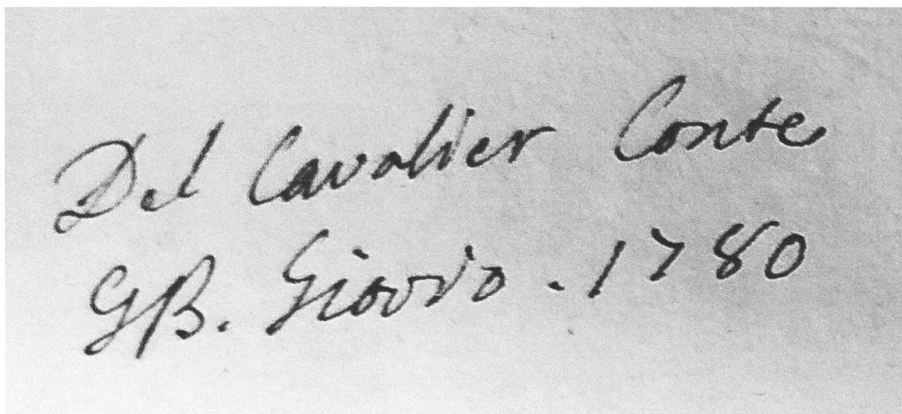 Del Cavalier Conte
GB. Giovio. 1780